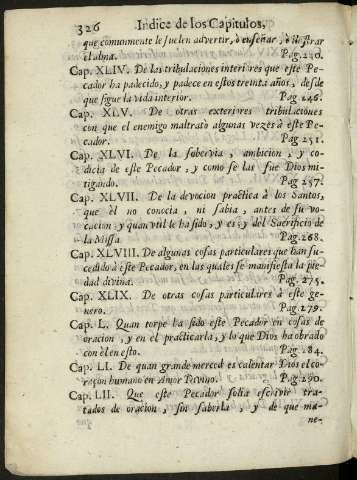 326 Indice de los Capitulos,
que comunmente le suelen advertir, ò enseñar, ò ilustrar
el alma. Pag. 240.
Cap. XLIV. De las tribulaciones interiores que este Pe-
cador ha padecido, y padece en estos treinta años, desde
que sigue la vida interior. Pag. 246.
Cap. XLV. De otras exteriores tribulaciones
con que el enemigo maltratò algunas vezes à este Pe-
cador. Pag. 251.
Cap. XLVI. De la sobervia, ambicion, y co-
dicia de este Pecador, y como se las fue Dios mi-
tigando. Pag. 257.
Cap. XLVII. De la devocion practica à los Santos,
que èl no conocia, ni sabia, antes de su vo-
cacion; y quan vtil le ha sido, y es; y del Sacrificio de
la Missa. Pag. 268.
Cap. XLVIII. De algunas cosas particulares que han su-
cedido à este Pecador, en las quales se manifiesta la pie-
dad divina. Pag. 275.
Cap. XLIX. De otras cosas particulares à este ge-
nero. Pag. 279.
Cap. L. Quan torpe ha sido este Pecador en cosas de
oracion, y en el practicarla, y lo que Dios ha obrado
con èl en esto. Pag. 284.
Cap. LI. De quan grande merced es calentar Dios el co-
raçon humano en Amor Divino. Pag. 290.
Cap. LII. Que este Pecador solia escrivir tra-
tados de oracion, sin saberla, y de que ma-
ne-